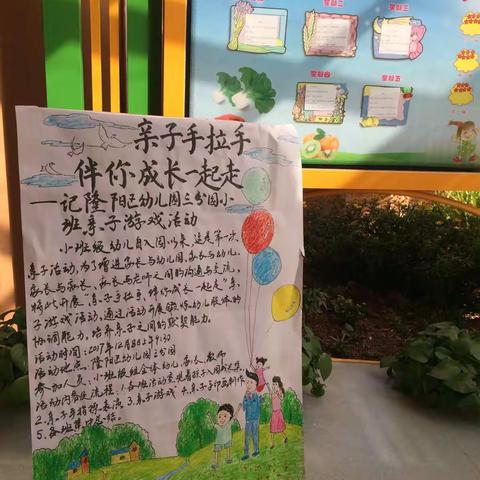 亲子手拉手
伴你成长一起走
——记隆阳区幼儿园三分园小
班亲子游戏活动
小班级幼儿自入园以来,这是第一次
亲子活动,为了增进家长与幼儿园、家长与幼儿、
家长与家长、家长与老师之间的沟通与交流,
特此开展“亲子手拉手,伴你成长一起走”亲
子游戏活动,通过活动开展锻炼幼儿肢体的
协调能力,培养亲子之间的默契能力。
活动时间:2017年12月8日 9:30
活动地点:隆阳区幼儿园三分园
参加人员:小班级组全体幼儿、家长、教师
活动内容及流程:1.各班活动室观看孩子入园成长集
2.亲子手指操表演 3.亲子游戏 4.亲子手印画制作
5.各班集中总结。
星期二
星期三
星期四
星期五